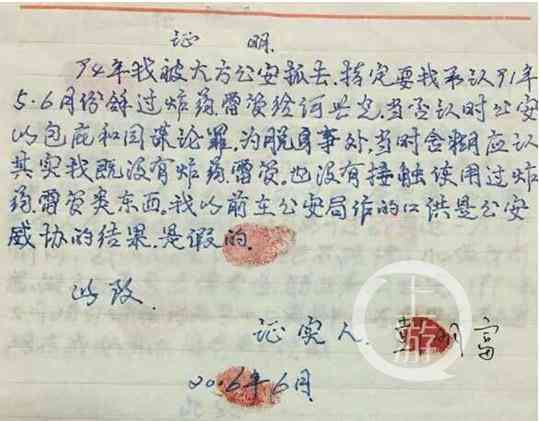 证 明
94年我被大方公安抓去,特定要我承认91年
5.6月份给过炸药.雷管给何兴光,当否认时公安
以包庇和同谋论罪,为脱身事处,当时含糊应认
其实我既没有炸药.雷管.也没有接触使用过炸
药.雷管类东西.我以前在公安局作的口供是公安
威协的结果.是假的.
此致.
证实人. 富
2006年6月
上游